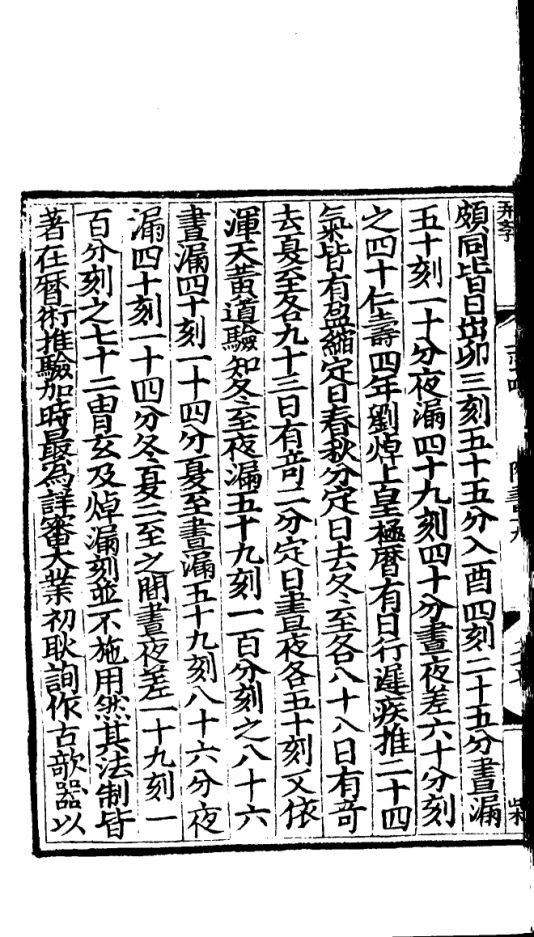 頗同皆日出卯三刻五十五分入酉四刻二十五分晝漏
五十刻一十分夜漏四十九刻四十分晝夜差六十分刻
之四十仁壽四年劉焯上皇極曆有日行遲疾推二十四
氣皆有盈縮定日春秋分定日去冬至各八十八日有竒
去夏至各九十三日有竒二分定日晝夜各五十刻又依
渾天黃道驗知冬至夜漏五十九刻一百分刻之八十六
晝漏四十刻一十四分夏至晝漏五十九刻八十六分夜
漏四十刻一十四分冬夏二至之間晝夜差一十九刻一
百分刻之七十二胄玄及焯漏刻並不施用然其法制皆
著在曆術推驗加時最為詳審大業初耿詢作古欹器以